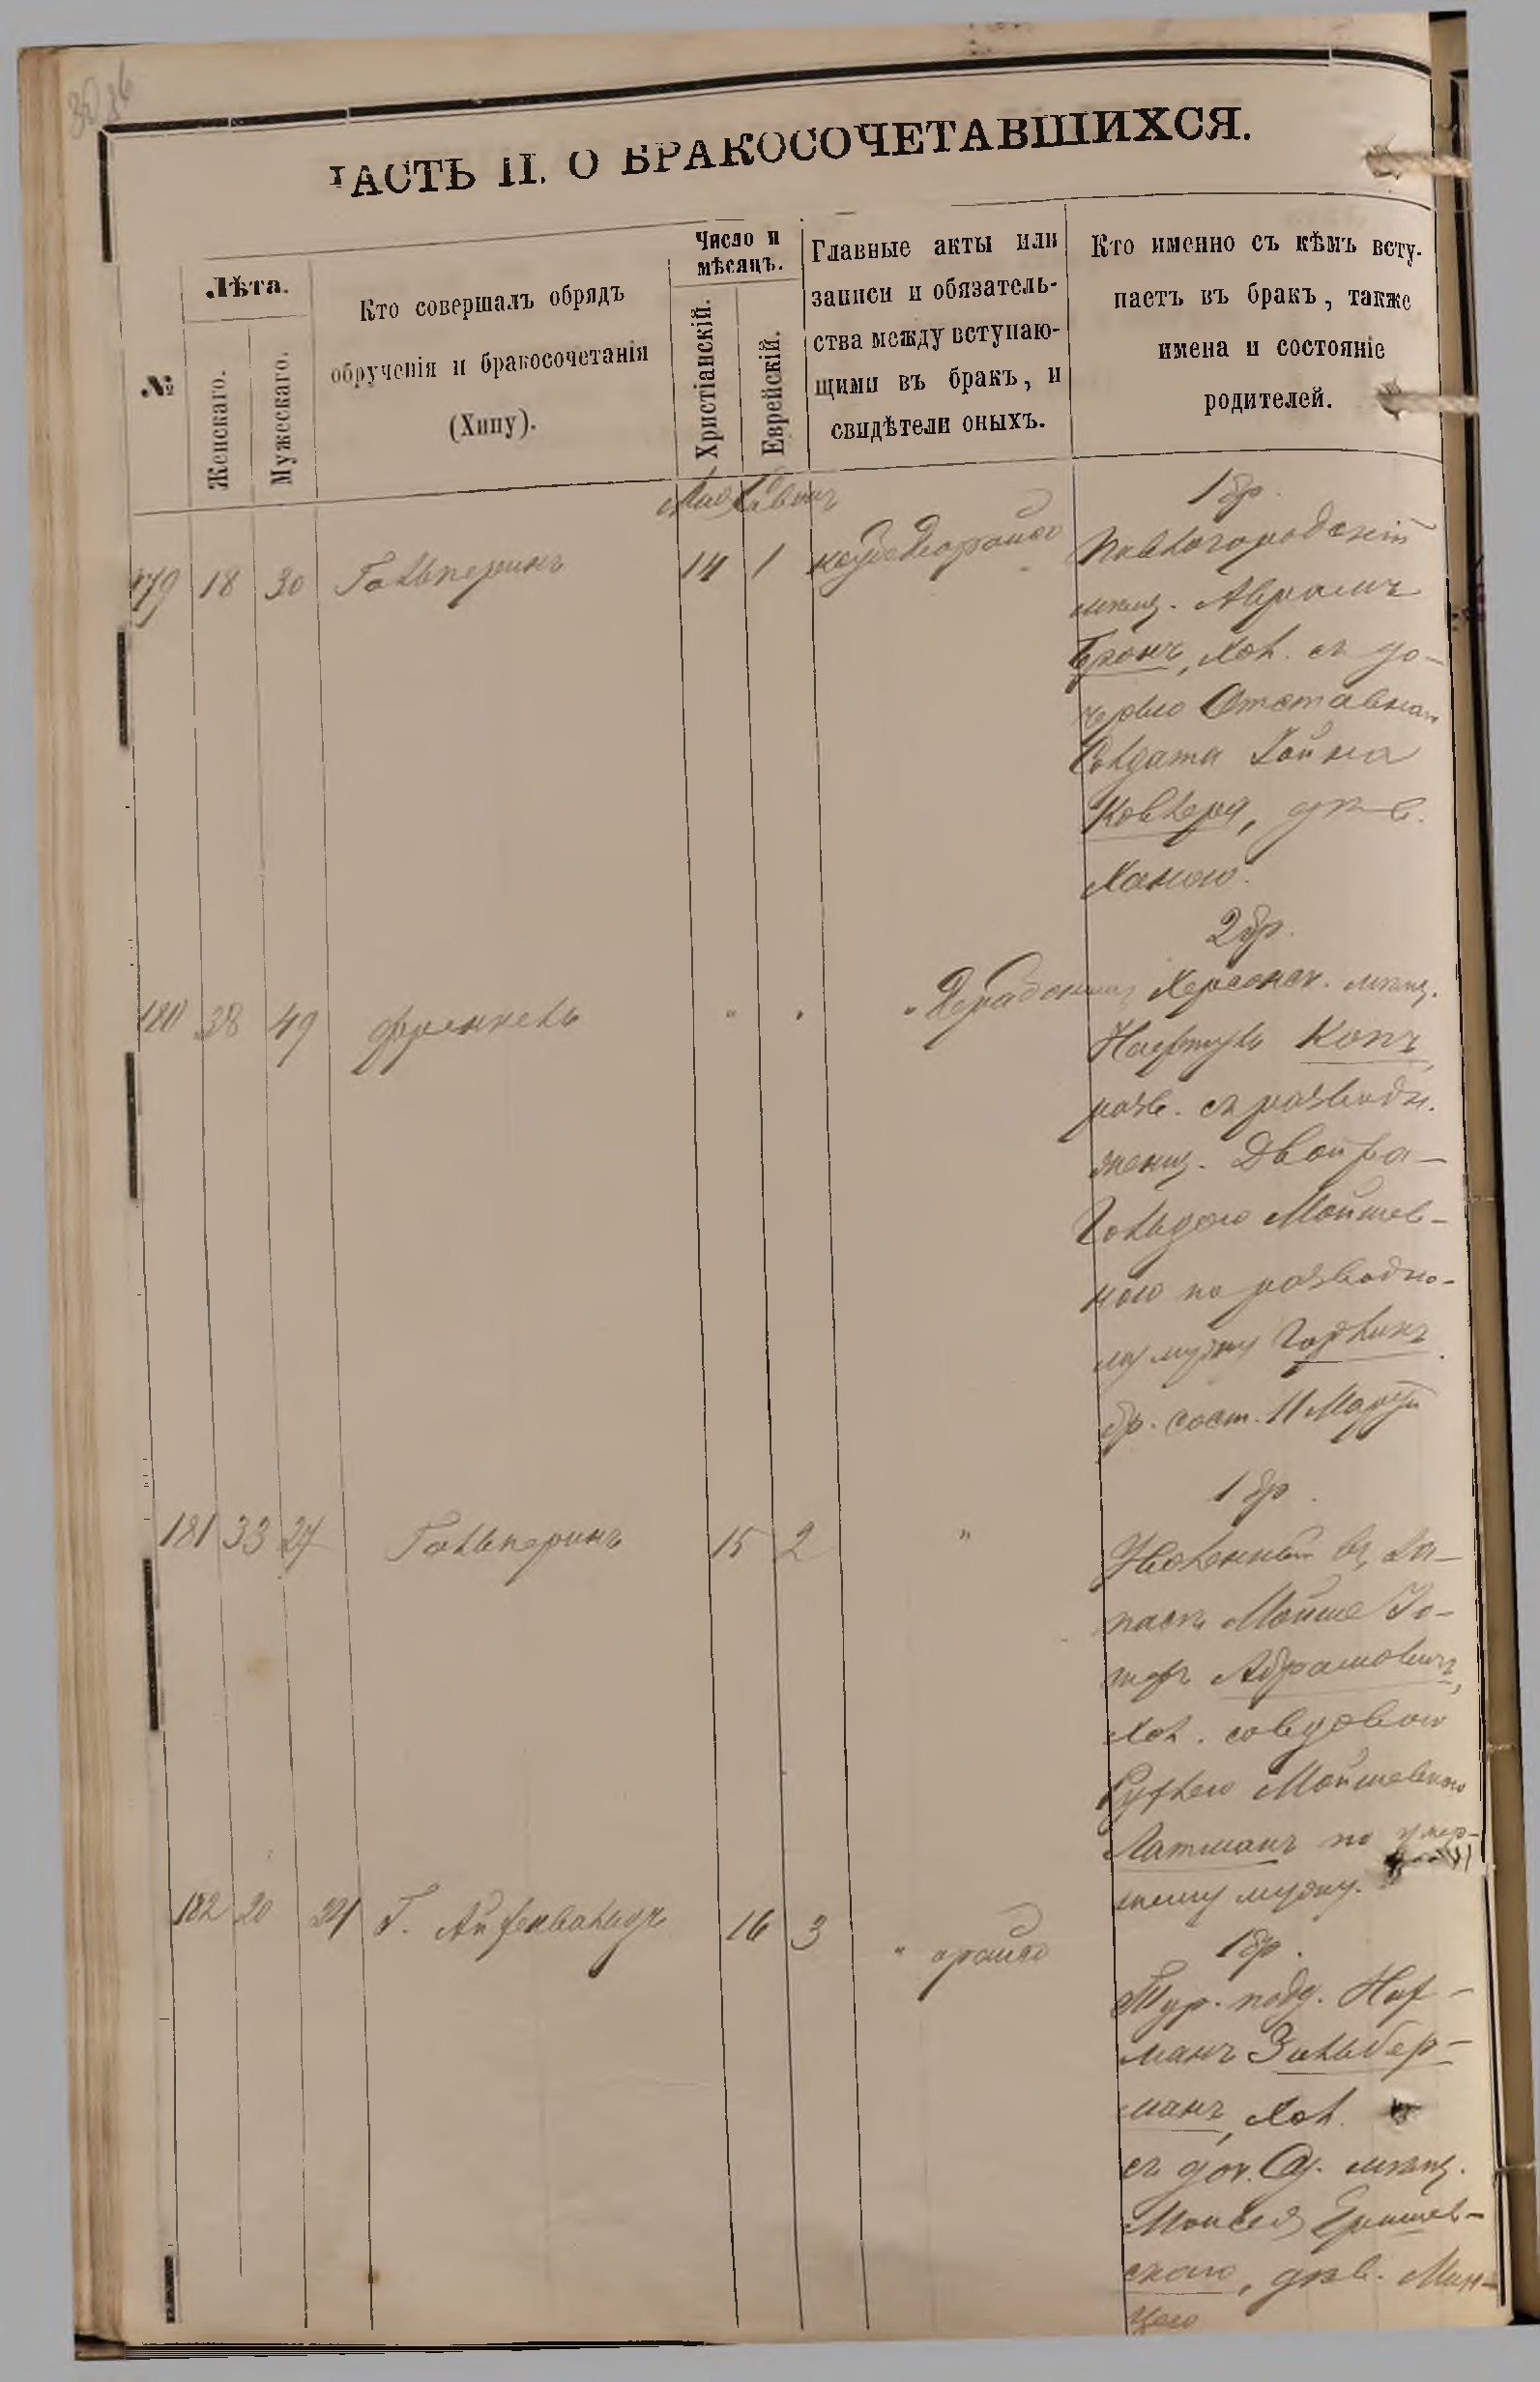 36
ЧАСТЬ II. О БРАКОСОЧЕТАВШИХСЯ.
№
Лѣта.
Женскаго.
Мужескаго.
Кто совершалъ обрядъ
обрученія и бракосочетанія
(Хипу).
Число и
мѣсяцъ.
Христіанскій.
Еврейскій.
Главные акты или
записи и обязатель-
ства между вступаю-
щими въ бракъ, и
свидѣтели оныхъ.
Кто именно съ кѣмъ всту-
паетъ въ бракъ, также
имена и состояніе
родителей.
1 бр.
179 18 30 Гальперинъ 14 1
Павлогородскій
мѣщ. Аврамъ
Бронъ, хол. съ до-
черью Отставнаго
Солдата Хайма
Ковлера, дѣв.
Ханою.
2 бр.
180 38 49 Френкель " "
Херсонск. мѣщ.
Нафтуль Копъ,
разв. съ разводн.
женщ. Двойра-
Гольдою Мойшев-
ною по разводно-
му мужу
бр. сост. 11 Марта
1 бр.
181 33 27 Гальперинъ 15 2 "
Уволенный въ за-
пасъ Мойше Іо-
Абрамовичъ,
хол. со вдовою
Рухлею Мойшевною
Латманъ по умер-
шему мужу.
182 20 24 Г. Айзенвальдъ 16 3
1 бр.
Тур. подд. Нах-
манъ Зильбер-
манъ, хол.
съ доч. Од. мѣщ.
Моисея
скаго, дѣв. Мин-
цею